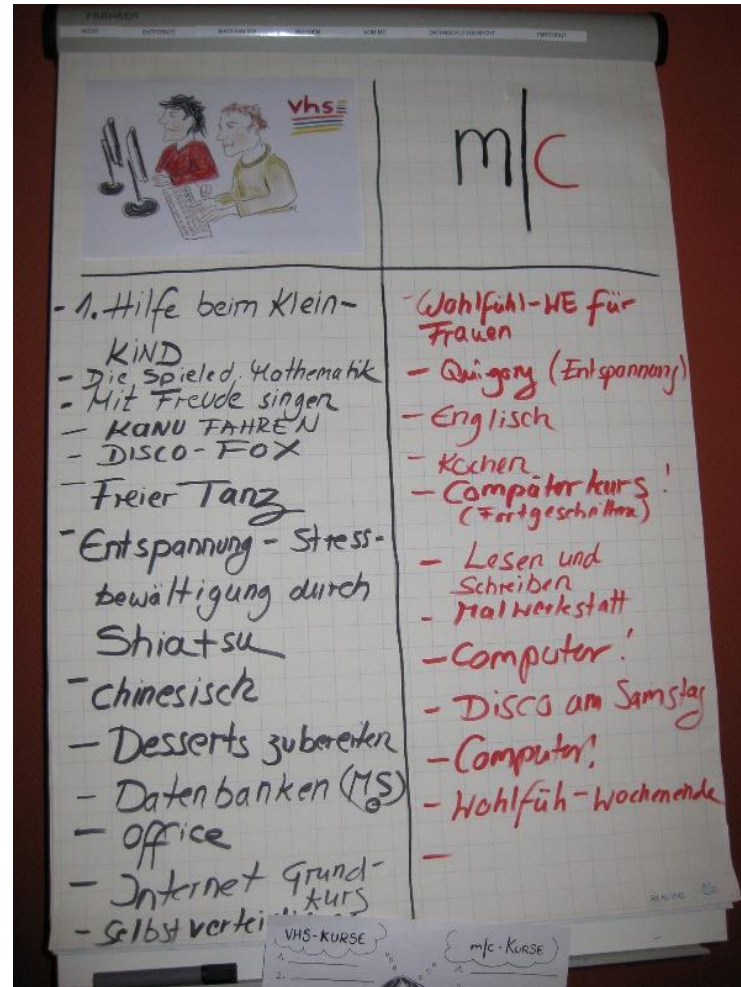 FRANKEN
vhs
m|c
- 1. Hilfe beim Klein-
KiND
- Die Spiele d. Mathematik
- Mit Freude singen
- KANU FAHREN
- DISCO-FOX
- Freier Tanz
- Entspannung - Stress-
bewältigung durch
Shiatsu
- chinesisch
- Desserts zubereiten
- Datenbanken (MS)
- Office
- Internet Grund-
kurs
- Selbstvertei
- Wohlfühl-WE für
Frauen
- Quigong (Entspannung)
- Englisch
- Kochen
- Computerkurs!
(Fortgeschritten)
- Lesen und
Schreiben
- Malwerkstatt
- Computer!
- Disco am Samstag
- Computer!
- Wohlfüh-Wochenende
-
VHS-KURSE
1.
2.
m/c-KURSE
1.